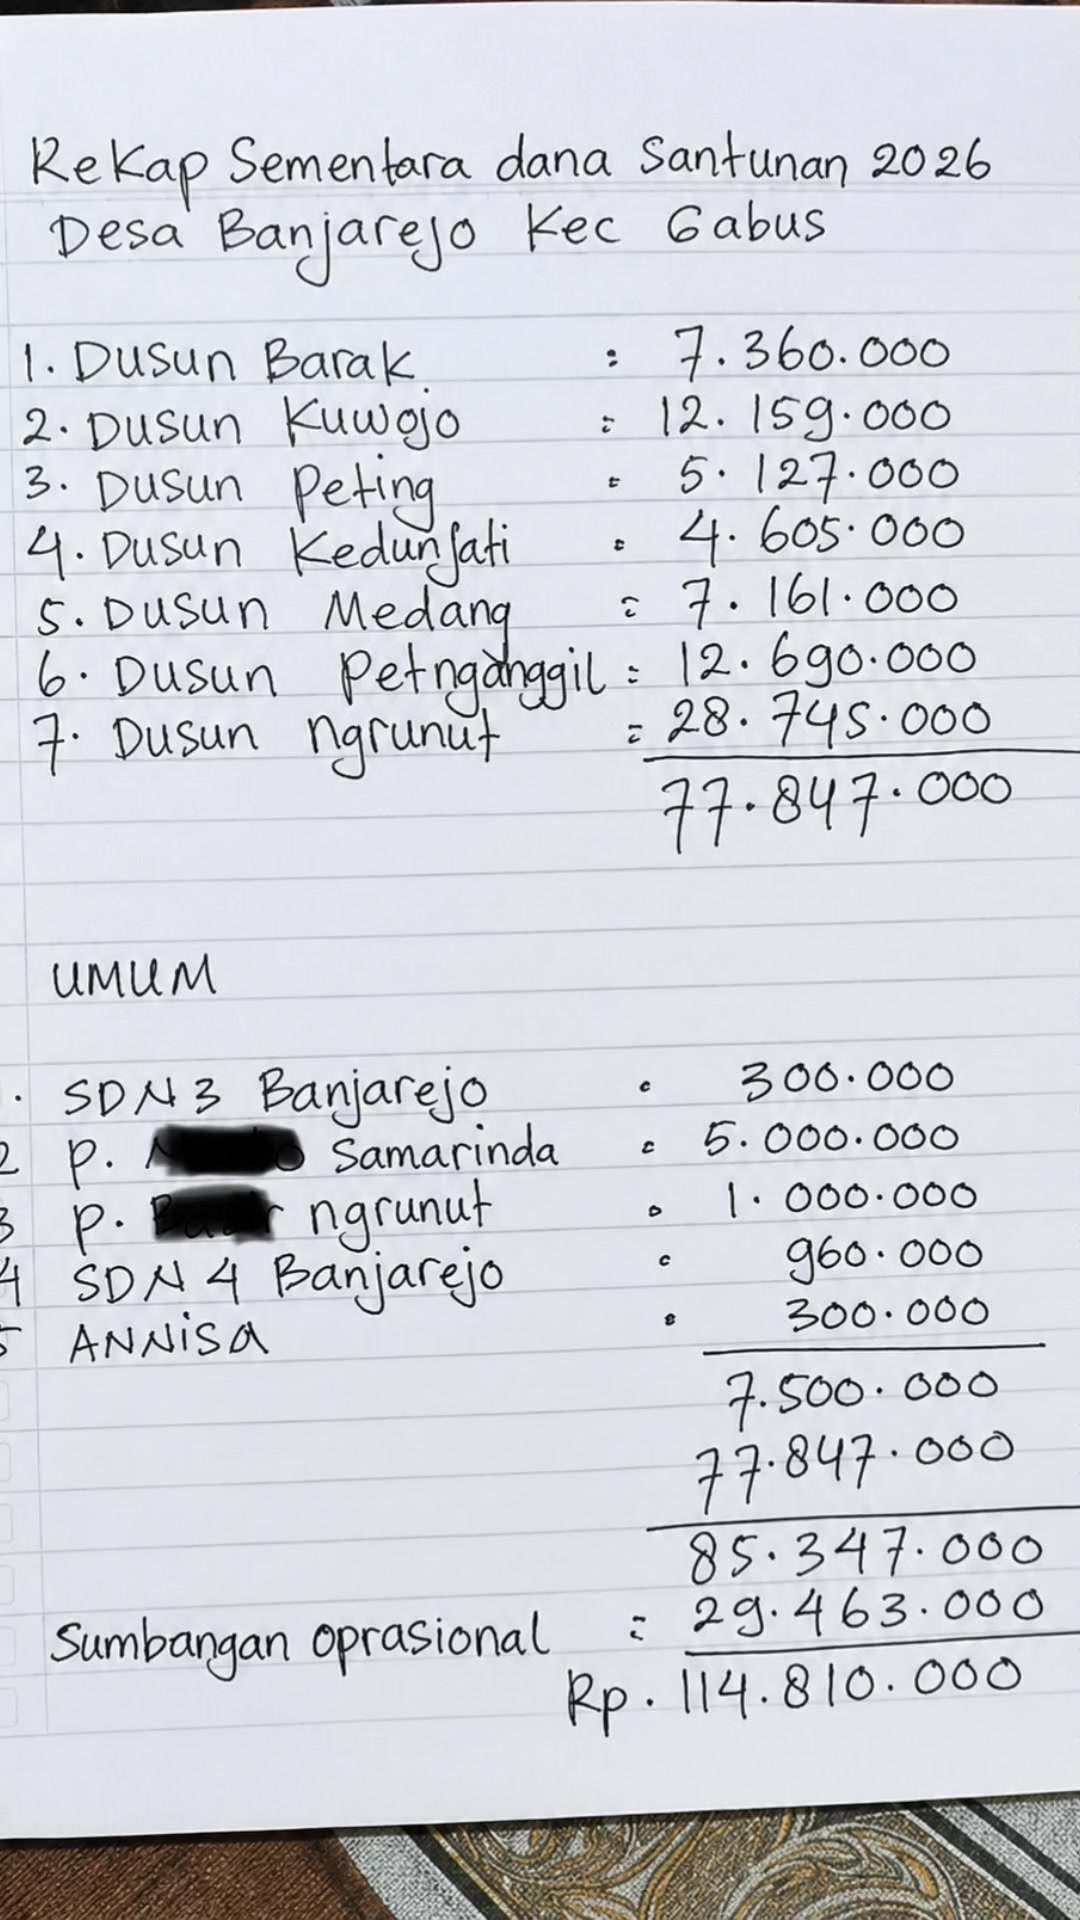 Rekap Sementara dana Santunan 2026
Desa Banjarejo Kec Gabus
1. Dusun Barak : 7.360.000
2. Dusun Kuwojo : 12.159.000
3. Dusun Peting : 5.127.000
4. Dusun Kedunjati : 4.605.000
5. Dusun Medang : 7.161.000
6. Dusun Petnganggil : 12.690.000
7. Dusun ngrunut : 28.745.000
77.847.000
UMUM
. SDN 3 Banjarejo : 300.000
2 P. Samarinda : 5.000.000
3 P. ngrunut : 1.000.000
4 SDN 4 Banjarejo : 960.000
5 ANNISA : 300.000
7.500.000
77.847.000
85.347.000
Sumbangan oprasional : 29.463.000
Rp. 114.810.000